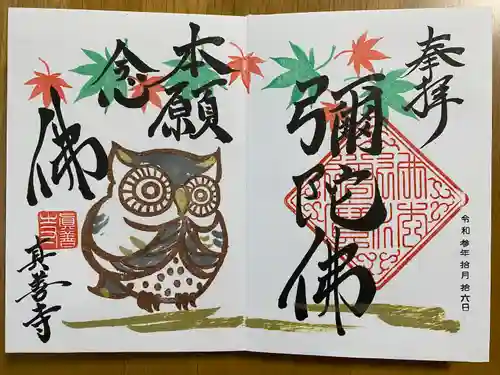 奉拝
彌陀佛
令和参年拾月拾六日
本願
念
佛
眞善
真善寺